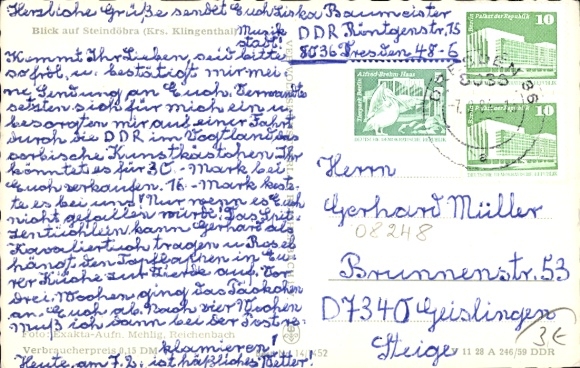 Herzliche Grüße sendet Euch Liska Baumeister
Blick auf Steindöbra (Krs. Klingenthal)
Musik
stadt!
DDR Röntgenstr. 15
8036 Dresden 48-6
Kommt Ihr Lieben, seid bitte
so froh, u. bestätigt mir mei
ne Sendung an Euch. Verwandte
setzten sich für mich ein u.
besorgten mir auf einer Fahrt
durch die DDR im Vogtland das
sorbische Kunstkästchen. Ihr
könntet es für 30.-Mark bei
Euch verkaufen. 16.-Mark koste-
te es bei uns! Nur wenn es Euch
nicht gefallen würde! Das Spit-
zentüchlein kann Gerhard als
Kavaliertuch tragen u. Rosel
hängt den Topflappen in Eu
rer Küche zur Zierde auf. Vor
drei Wochen ging das Päckchen
an Euch ab. Nach vier Wochen
muß ich dann bei der Post re-
klamieren!
Heute, am 7.2. ist häßliches Wetter!
Foto: Exakta-Aufn. Mehlig, Reichenbach
Verbraucherpreis 0,15 DM
14 452
V 11 28 A 246/59 DDR
Berlin Palast der Republik
10
DEUTSCHE DEMOKRATISCHE REPUBLIK
Tierpark Berlin Alfred-Brehm-Haus
DEUTSCHE DEMOKRATISCHE REPUBLIK
Berlin Palast der Republik
10
DEUTSCHE DEMOKRATISCHE REPUBLIK
DRESDEN 36
8036
a
Herrn
Gerhard Müller
08248
Brunnenstr. 53
D7340 Geislingen
Steige
3€